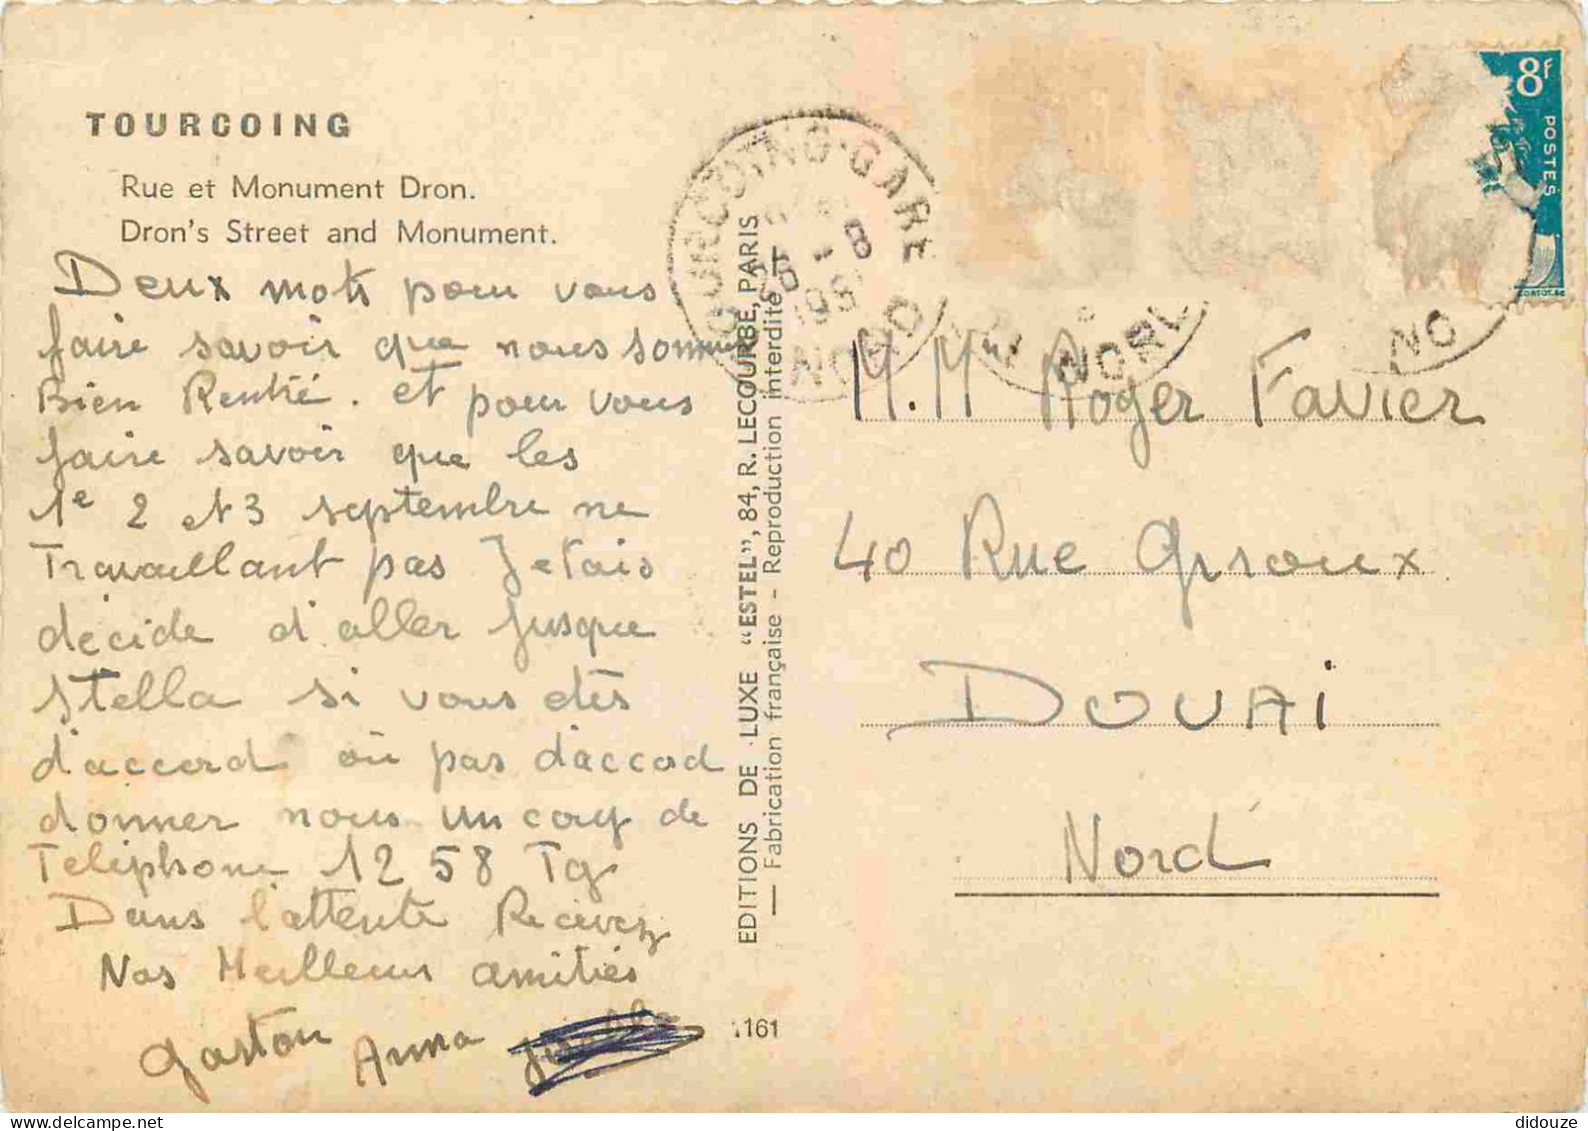 TOURCOING
Rue et Monument Dron.
Dron's Street and Monument.
Deux mots pour vous
faire savoir que nous sommes
Bien Rentré. et pour vous
faire savoir que les
1e 2 et 3 septembre ne
Travaillant pas Jetais
décide d'aller Jusque
Stella si vous etês
d'accord où pas d'accord
donner nous un coup de
Teléphone 12 58 Tg
Dans l'attente Recevez
Nos Meilleurs amitiés
Gaston Anna
EDITIONS DE LUXE "ESTEL", 84, R. LECOURBE, PARIS
— Fabrication française - Reproduction interdite —
1161
TOURCOING-GARE
NORD
NORD
NO
8f
POSTES
M. M Roger Favier
40 Rue Giroux
DOUAI
Nord
didouze